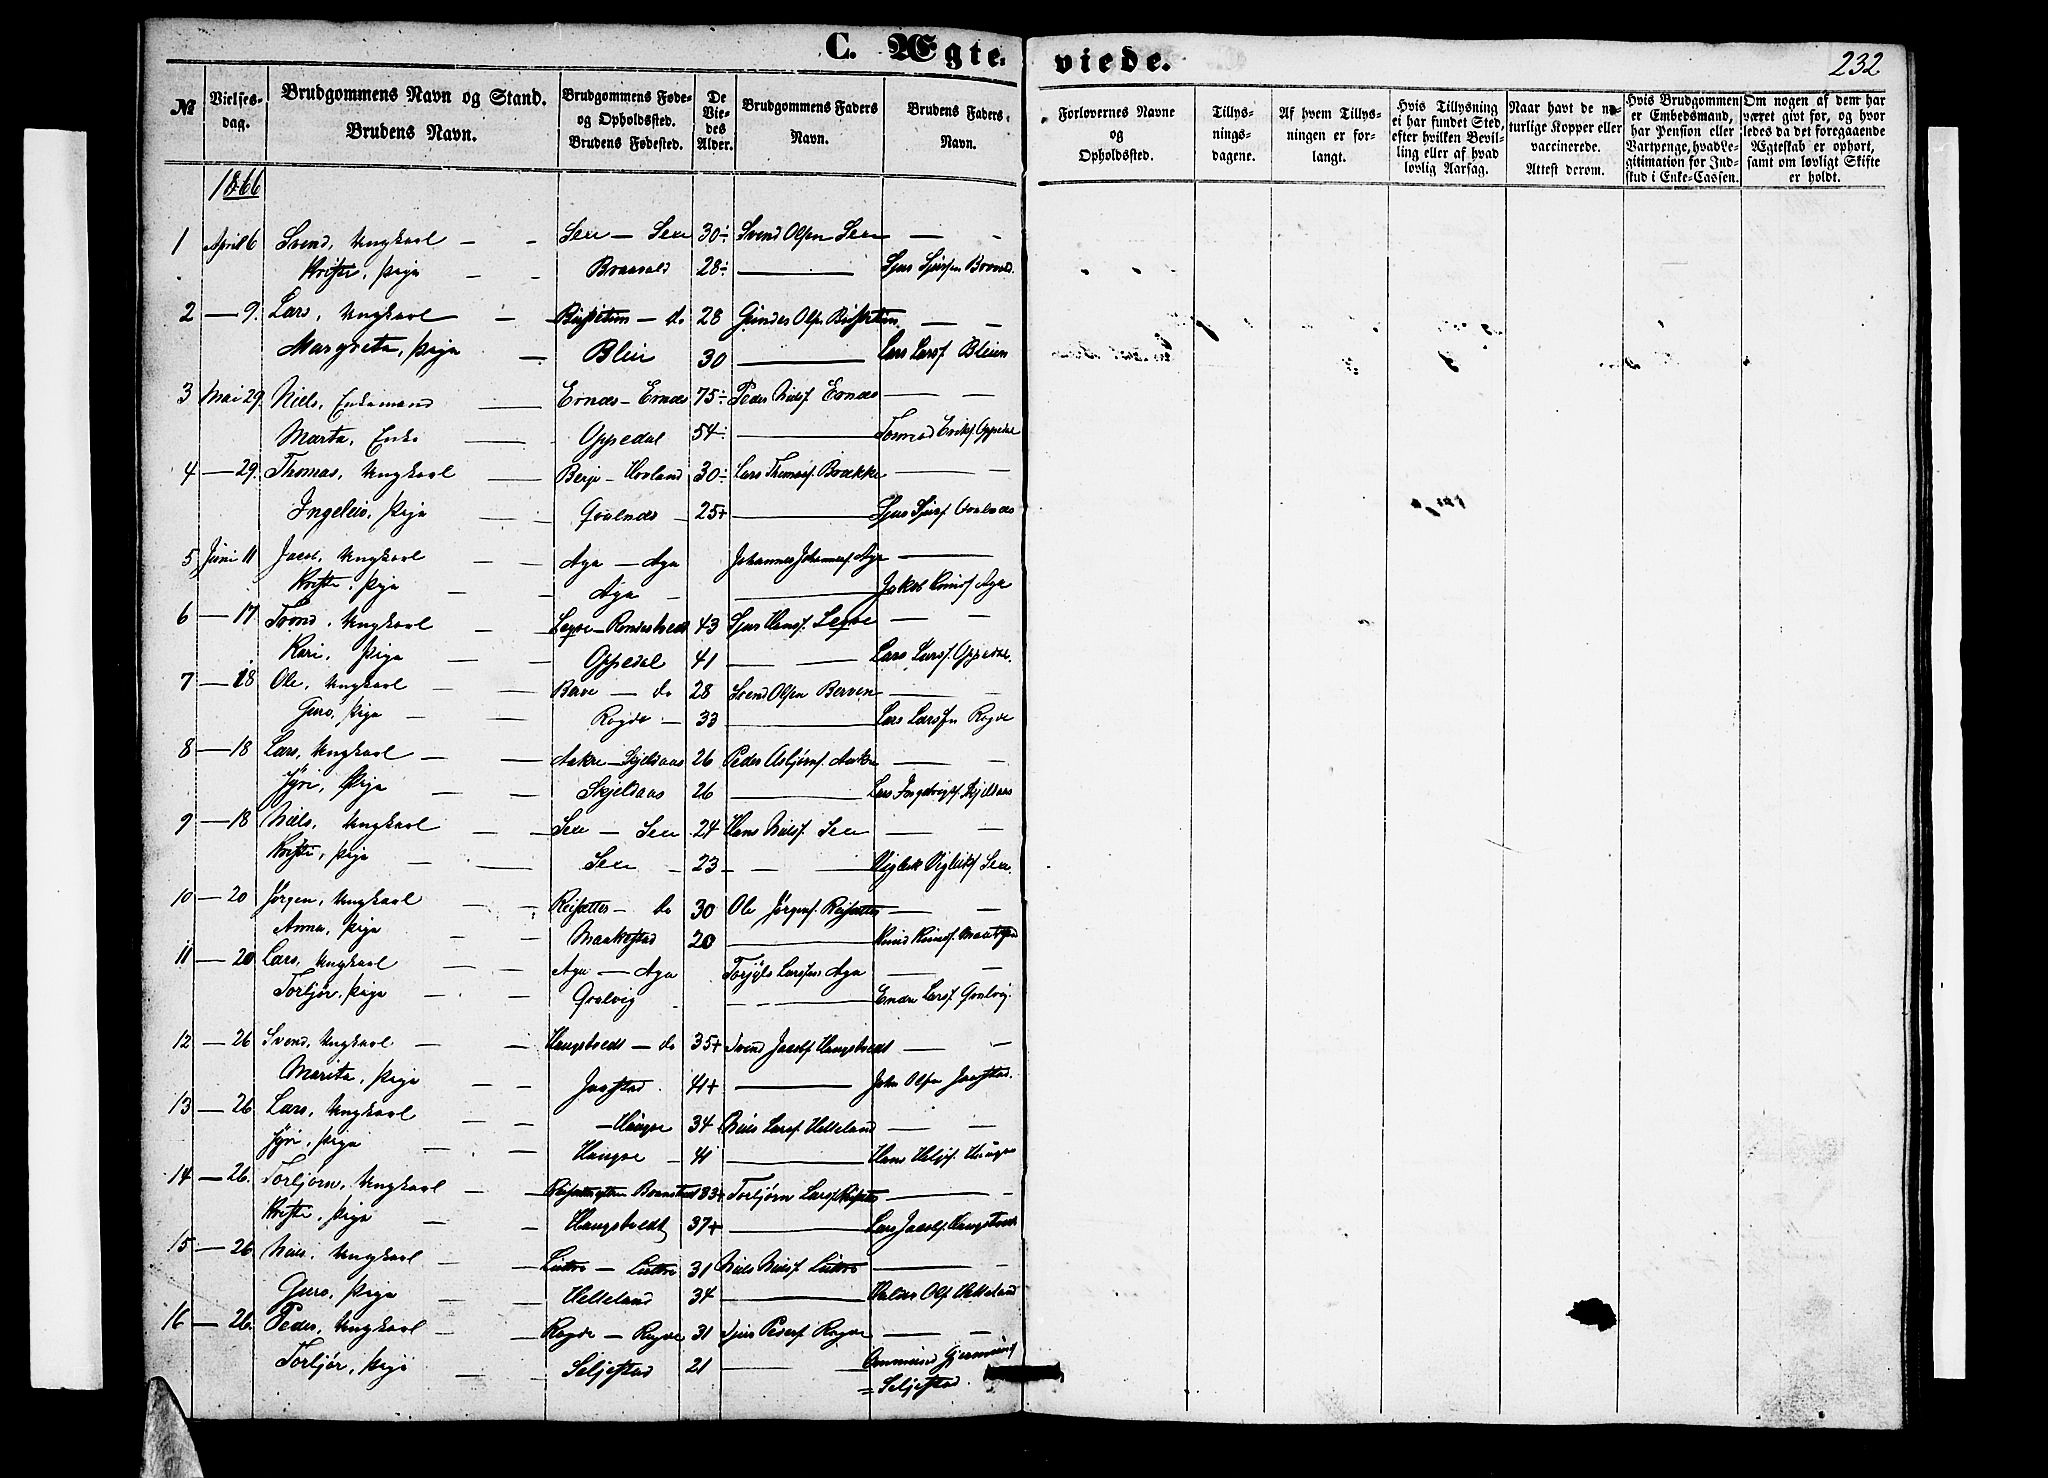 C. Ægte-
viede.
232
№
Vielses-
dag.
Brudgommens Navn og Stand.
Brudens Navn.
Brudgommens Føde-
og Opholdssted.
Brudens Fødested.
De
Vie-
des
Alder.
Brudgommens Faders
Navn.
Brudens Faders
Navn.
Forlovernes Navne
og
Opholdssted.
Tillys-
nings-
dagene.
Af hvem Tillys-
ningen er for-
langt.
Hvis Tillysning
ei har fundet Sted,
efter hvilken Bevil-
ling eller af hvad
lovlig Aarsag.
Naar havt de na-
turlige Kopper eller
vaccinerede.
Attest derom.
Hvis Brudgommen
er Embedsmand,
har Pension eller
Vartpenge, hvad Le-
gitimation for Ind-
skud i Enke-Cassen.
Om nogen af dem har
været givt før, og hvor-
ledes da det foregaaende
Ægteskab er ophørt,
samt om lovligt Skifte
er holdt.
1866
1 April 6 Svend, Ungkarl — — Sexe — Sexe 30 Svend Olsen Sexe — —
Kristi, Pige — — 28 — Sjur Sjursen
2 — 9. Lars, Ungkarl — — do 28 Olsen — —
Margreta, Pige — Bleie 30 — Lars Larsf. Bleien
3 Mai 29. Niels, Enkemand — Ernes — Ernes 75 Peder Nielsf. Ernes — —
Marta, Enke — Oppedal 54 — Tormod Eriksf. Oppedal
4 — 29. Thomas, Ungkarl — Berje — Hovland 30 Lars Thomasf. Brække — —
Ingeleiv, Pige — — 25+ — Sjur Sjursf.
5 Juni 11 Jacob, Ungkarl — — Aga — Aga Johannes Johannesf. Aga —
Kristi, Pige — — Aga — — Jakob Aga
6 — 17 Trond, Ungkarl — — Legve — 43 Sjur Hansf. Legve — —
Kari, Pige — — Oppedal 41 — — Lars Larsf. Oppedal.
7 — 18 Ole, Ungkarl — — Berve — do 28 Svend Olsen Berven — —
Guro, Pige — — Rogde — 33 — Lars Larsen Rogde
8 — 18 Lars, Ungkarl — — Aakre — Skjeldaas 26 Peder Asbjørnsf. Aakre — —
Jyri, Pige — — Skjeldaas 26 — Lars Skjeldaas
9 — 18 Niels, Ungkarl — — Sexe — Sexe 24 Hans Nielsf. Sexe — —
Kristi, Pige — — Sexe — 23 — — — Viglek Vigleksf. Sexe.
10 — 20 Jørgen, Ungkarl — — Reisæter — do 30 Ole Jørgensf. Reisæter — —
Anna, Pige — — Maakestad 20 — Knud Knudsf. Maakestad
11 — 20 Lars, Ungkarl — — Aga — Aga Torjyls Larssens Aga — —
Torbjør, Pige — — Qvalvig — — — Endre Larsf. Qvalvig.
12 — 26 Svend, Ungkarl — — Haugstvedt — do 35+ Svend Jacobf. Haugstvedt — —
Marita, Pige — — Jaastad. 41+ — John Olsen Jaastad.
13 — 26 Lars, Ungkarl — — — Haugse 34 Niels Larsf. Helleland — —
Jyri, Pige — — Haugse — 41 — Hans Haugse
14 — 26. Torbjørn, Ungkarl — — 33+ Torbjørn Larsf. Reisæter — —
Kristi, Pige — — Haugstvedt 37+ — Lars Jacobf. Haugstvedt
15 — 26 Niels, Ungkarl — — Lutro — Lutro 31 Niels Nielsf. Lutro — —
Guro, Pige — — Helleland 34 — Haldor Olsf. Helleland
16 — 26. Peder, Ungkarl — — Rogde — Rogde 31 Sjur Pedersf. Rogde — —
Torbjør, Pige — — Seljestad 21 — Ommund
= Seljestad.